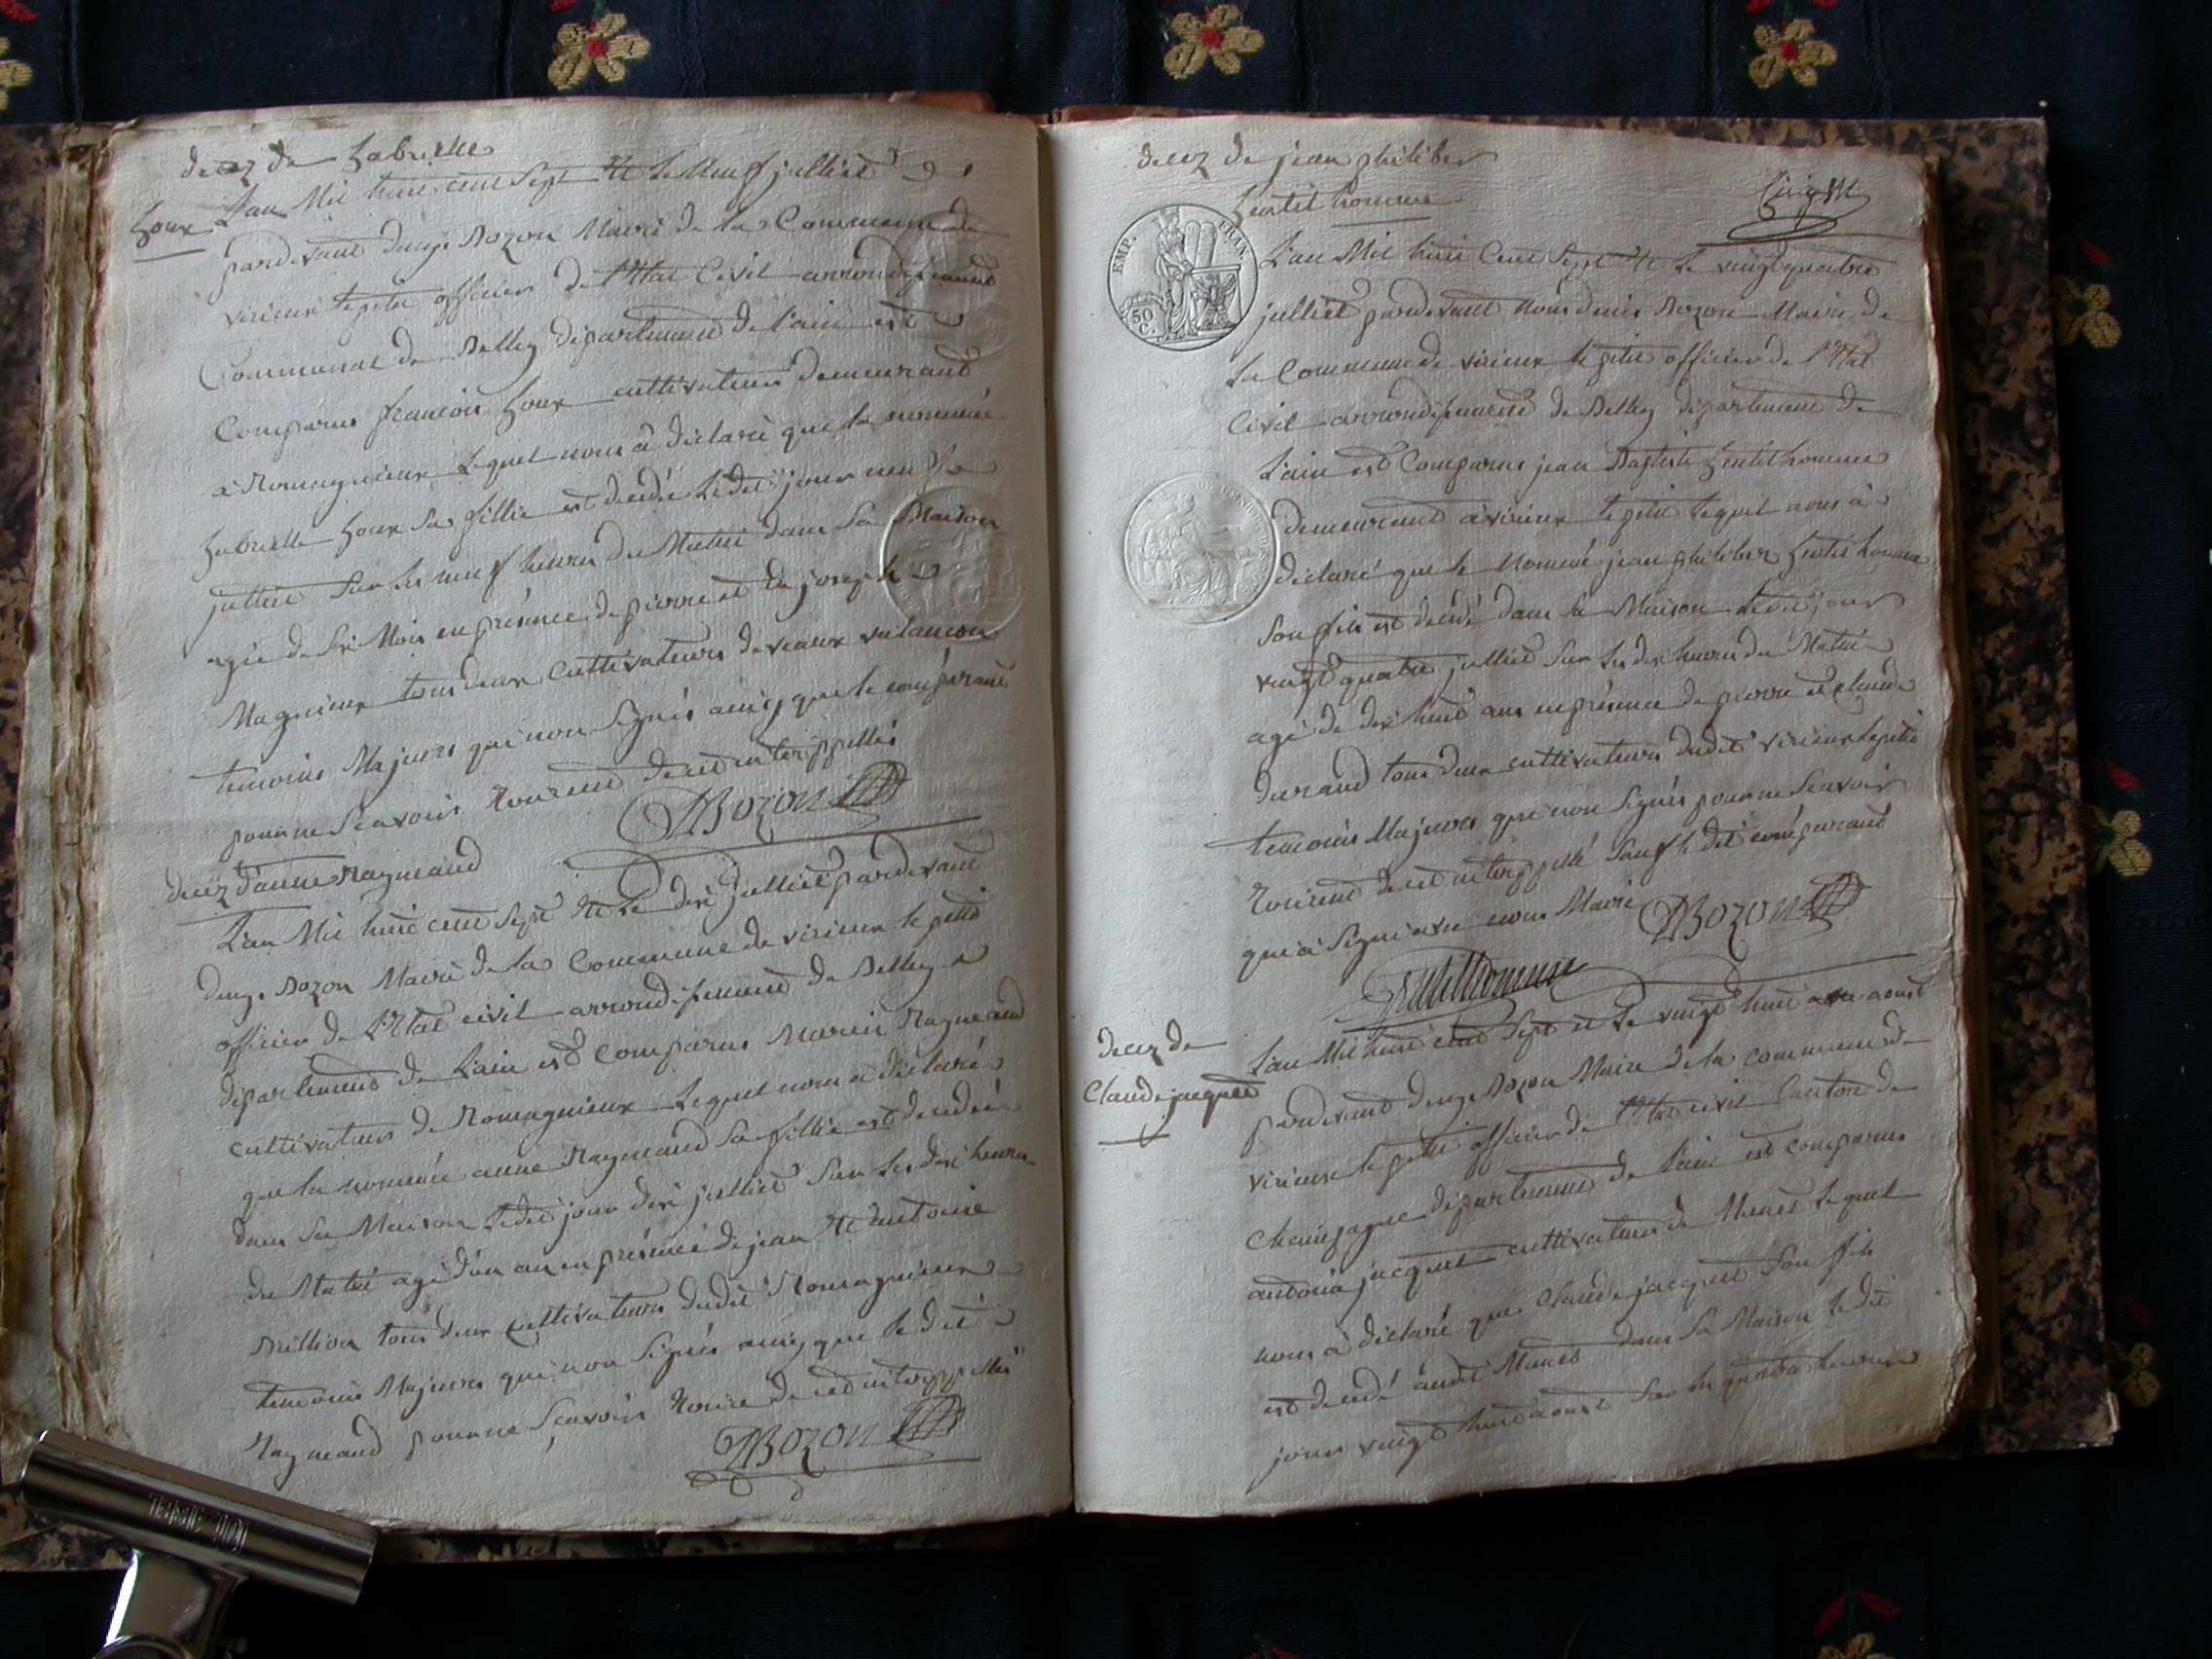 decez de Gabrielle
Goux
L'an Mil huit cent Sept et le Neuf julliet
pardevant denys Bozon Maire de la Commune de
virieux le petit officier de l'Etat Civil arrondissement
Communal de Belley département de l'ain est
Comparus francois Goux cultivateur demeurant
à Romagnieux lequel nous à déclaré que la nommée
Gabrielle Goux sa fillie est decedée ledit jour neuf
julliet sur les neuf heures du Matin dans sa Maison
agée de six Mois en présence de pierre et de joseph
Magnieux tous deux cultivateurs de vaux
temoins Majeurs qui non signés ainsy que le comparant
pour ne scavoir de ce interppellés
DBozon
decez d'anne Raymand
L'an Mil huit cent Sept et le dix julliet pardevant
denys Bozon Maire de la Commune de virieux le petit
officier de L'Etat civil arrondissement de Belley
département de L'ain est Comparus
cultivateur de Romagnieux lequel nous a déclaré
que la nommée anne Raymand sa fillie est decedée
dans sa Maison ledit jour dix julliet sur les dix heures
du Matin agé d'un an en présence de jean et antoine
tous deux cultivateurs dudit Romagnieux
temoins Majeurs qui non signés ainsy que le dit
Raymand pour ne scavoir de ce interppellés
DBozon
decez de jean philiber
Gentil homme
EMP. FRAN.
50 C.
L'an Mil huit Cent Sept et le vingt quatre
julliet pardevant nous denis Bozon Maire de
la Commune de virieux le petit officier de l'Etat
Civil arrondissement de Belley département de
L'ain est Comparus jean Baptiste Gentil homme
demeurant à virieux le petit lequel nous à
déclaré que le Nommé jean philiber Gentil homme
son fils est decedé dans sa Maison ledit jour
vingt quatre julliet sur les dix heures du Matin
agé de dix huit ans en présence de pierre et claude
durand tous deux cultivateurs dudit virieux le petit
temoins Majeurs qui non signés pour ne scavoir
de ce interppellé sauf le dit comparant
qui à signé avec nous Maire DBozon
Gentilhomme
decez de
Claude jacquet
L'an Mil huit cent Sept et le vingt huit aoust
pardevant denys Bozon Maire de la commune de
virieux le petit officier de l'Etat civil Canton de
Champagne département de L'ain est comparus
antoine jacquet cultivateur de Munet lequel
nous à déclaré que Claude jacquet son fils
est decedé audit Munet dans sa Maison ledit
jour vingt huit aoust sur les quatre heures